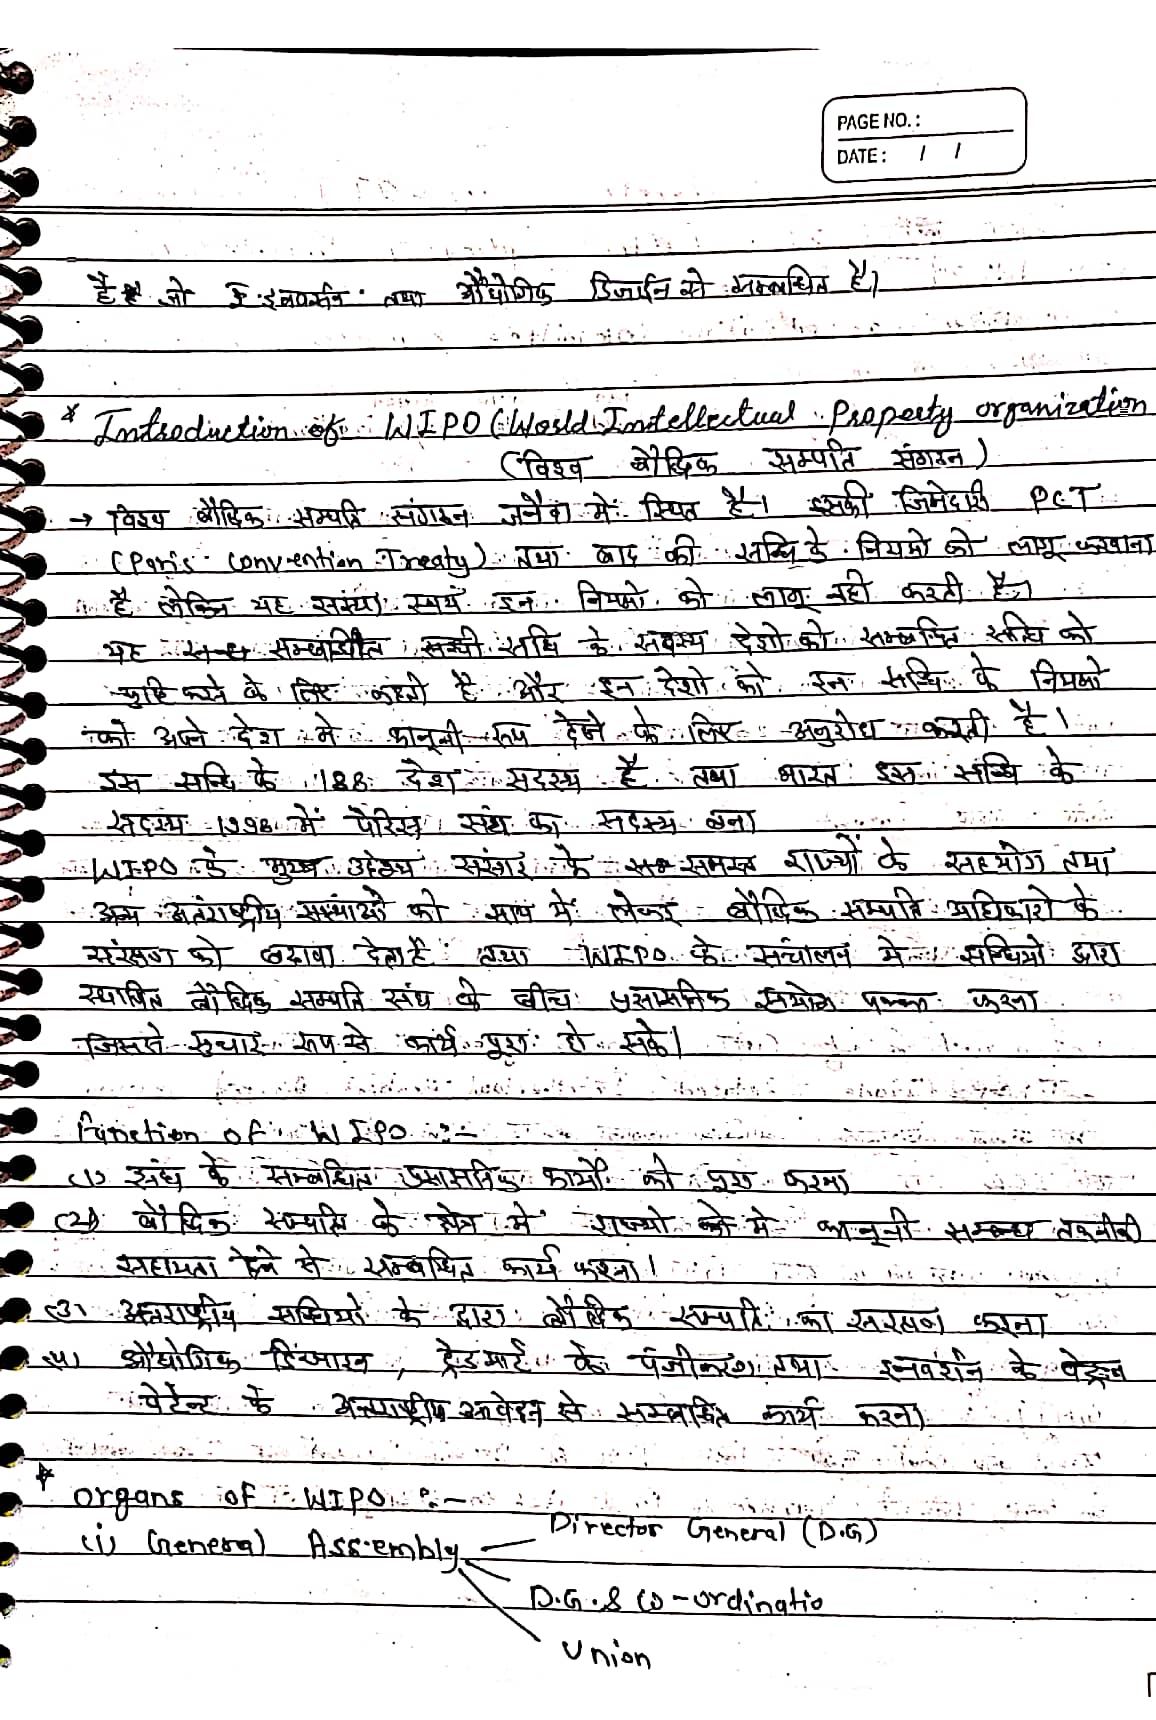 PAGE NO.:
DATE: / /
है जो इनवर्सन तथा औद्योगिक डिजाईन से सम्बन्धित है।
* Introduction of WIPO (World Intellectual Property organization
(विश्व बौद्धिक सम्पति संगठन)
→ विश्व बौद्धिक सम्पति संगठन जनेवा में स्थित है। इसकी जिमेदारी PCT
(Paris Convention Treaty) तथा बाद की सन्धि के नियमो को लागू करवाना
है लेकिन यह संस्था स्वयं इन नियमो को लागू नही करती है।
यह सम्बंधित सभी संधि के सदस्य देशो को सम्बंधित संधि को
पुष्टि करने के लिए कहती है और इन देशो को इन सन्धि के नियमो
को अपने देश मे कानूनी रूप देने के लिए अनुरोध करती है।
इस सन्धि के 188 देश सदस्य है तथा भारत इस सन्धि के
सदस्य 1998 में पेरिस संघ का सदस्य बना
WIPO के मुख्य उद्देश्य संसार के समस्त राज्यों के सहयोग तथा
अन्य अतंराष्ट्रीय संस्थाओ को साथ में लेकर बौद्धिक सम्पति अधिकारो के
संरक्षण को बढावा देना है तथा WIPO के संचालन मे सन्धियो द्वारा
स्थापित बौद्धिक सम्पति संघ के बीच प्रसासनिक सयोग पक्का करना
जिससे सुचारू रूप से कार्य पूरा हो सके।
Function of WIPO :-
(1) संघ के सम्बंधित प्रसासनिक कार्यो को पूरा करना
(2) बौद्धिक सम्पति के क्षेत्र में राज्यो को मे कानूनी सम्बन्ध तकनीकी
सहायता देने से सम्बंधित कार्य करना।
(3) अतंराष्ट्रीय सन्धियो के द्वारा बौद्धिक सम्पति का संरक्षण करना
(4) औद्योगिक डिजाइन, ट्रेडमार्क के पंजीकरण तथा इनवर्शन के
पेटेन्ट के अन्तराष्ट्रीय आवेदन से सम्बन्धित कार्य करना
* organs of WIPO :-
(i) General Assembly
Director General (D.G)
D.G. & Co-ordinatio
Union